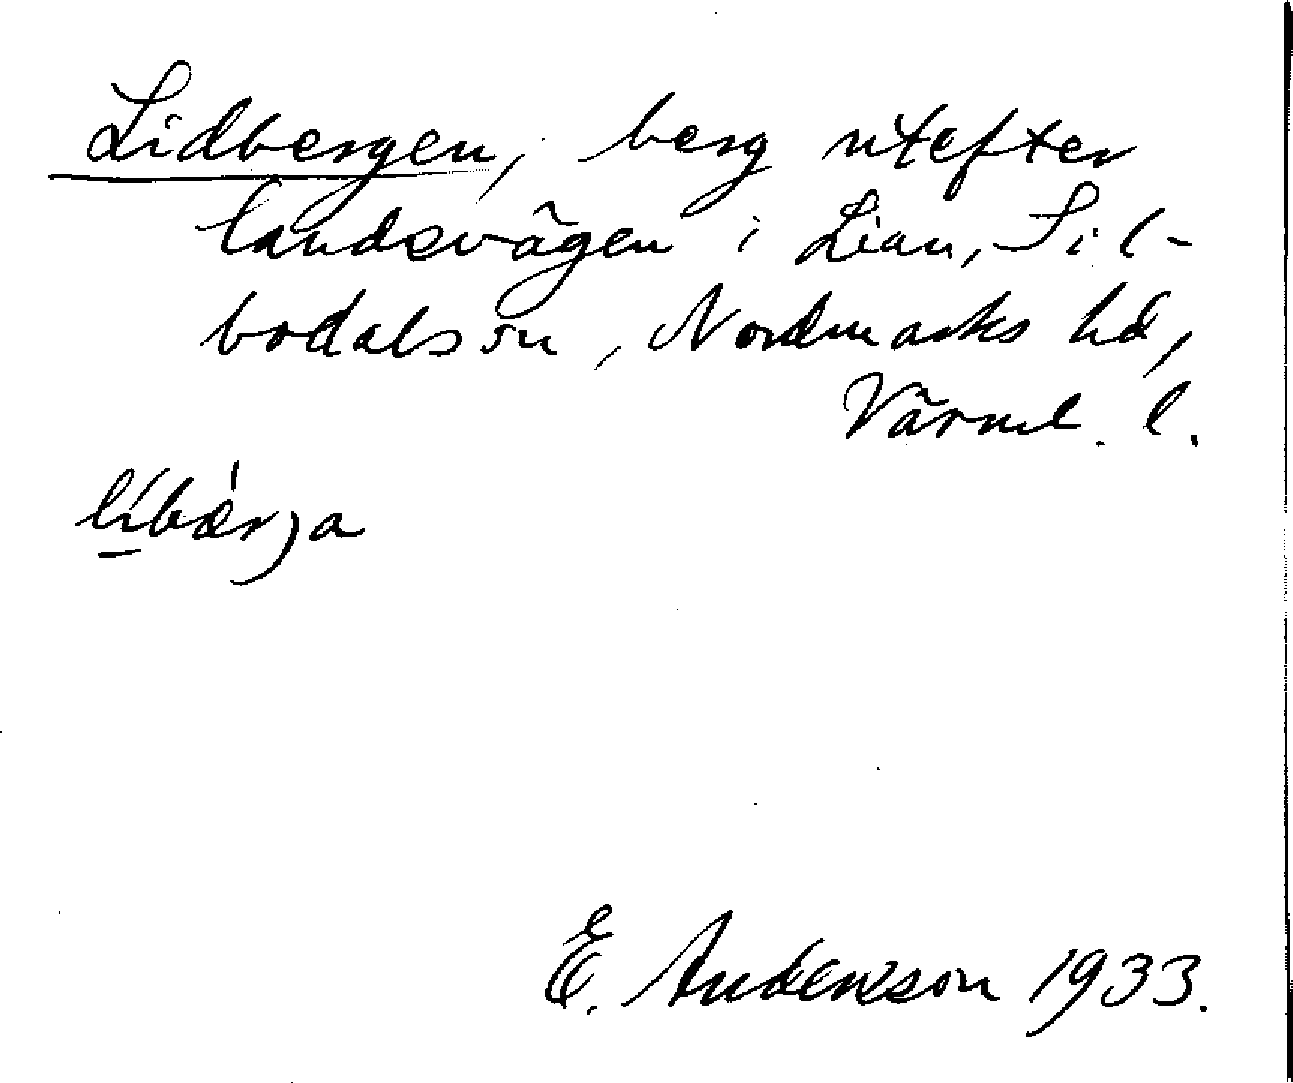 Lidbergen, berg utefter
landsvägen i Lian, Sil-
bodals sn, Nordmarks hd,
Värml. l.
lìbæ̀rja
E. Andersson 1933.